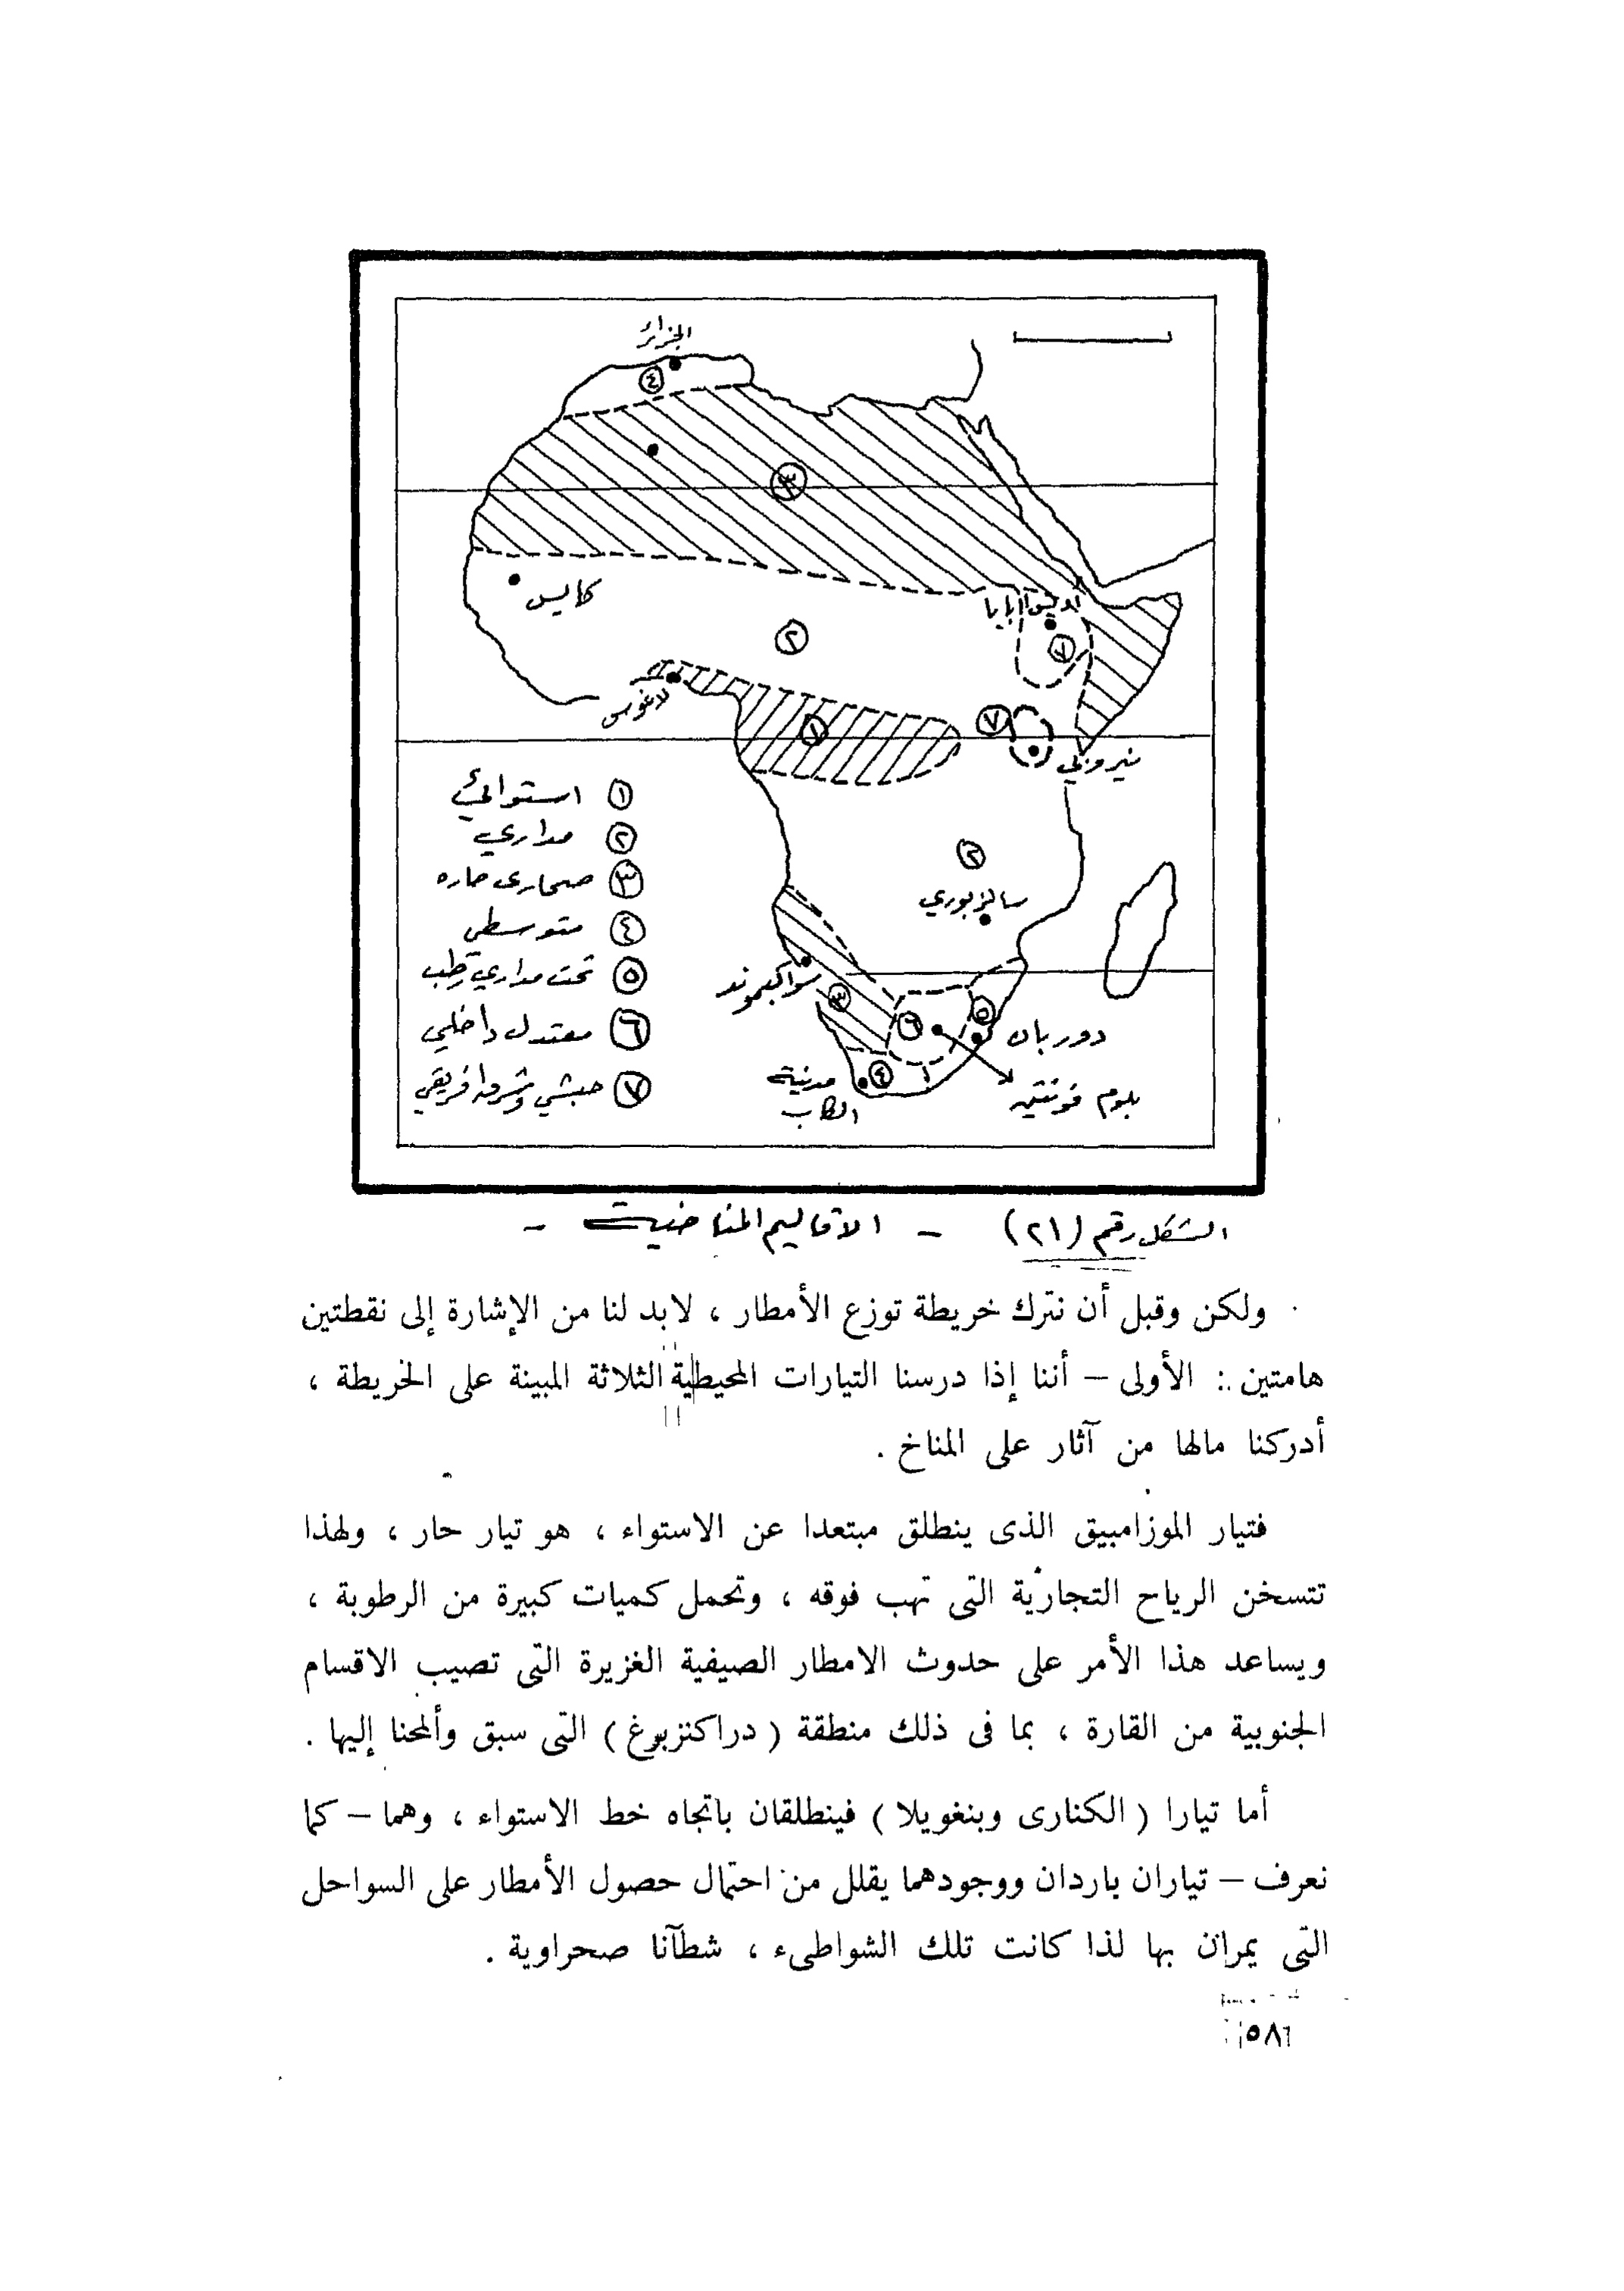 الجزائر
٤
٣
كايس
اديس ابابا
٢
٧
لاغوس
١
٧
نيروبي
١ استوائي
٢ مداري
٣ صحارى حاره
٤ متوسطي
٥ تحت مداري رطب
٦ معتدل داخلي
٧ حبشي وشرق افريقي
٢
سالزبوري
سواكبموند
٣
٦
٥
دوربان
٤
مدينة
الكاب
بلوم فونتين
الشكل رقم (٢١) – الاقاليم المناخية –
ولكن وقبل أن نترك خريطة توزع الأمطار ، لابد لنا من الإشارة إلى نقطتين
هامتين : الأولى – أننا إذا درسنا التيارات المحيطية الثلاثة المبينة على الخريطة ،
أدركنا مالها من آثار على المناخ .
فتيار الموزامبيق الذى ينطلق مبتعدا عن الاستواء ، هو تيار حار ، ولهذا
تتسخن الرياح التجارية التى تهب فوقه ، وتحمل كميات كبيرة من الرطوبة ،
ويساعد هذا الأمر على حدوث الامطار الصيفية الغزيرة التى تصيب الاقسام
الجنوبية من القارة ، بما فى ذلك منطقة ( دراكنزبرغ ) التى سبق وألمحنا إليها .
أما تيارا ( الكنارى وبنغويلا ) فينطلقان باتجاه خط الاستواء ، وهما – كما
نعرف – تياران باردان ووجودهما يقلل من احتمال حصول الأمطار على السواحل
التى يمران بها لذا كانت تلك الشواطىء ، شطآنا صحراوية .
٥٨٦